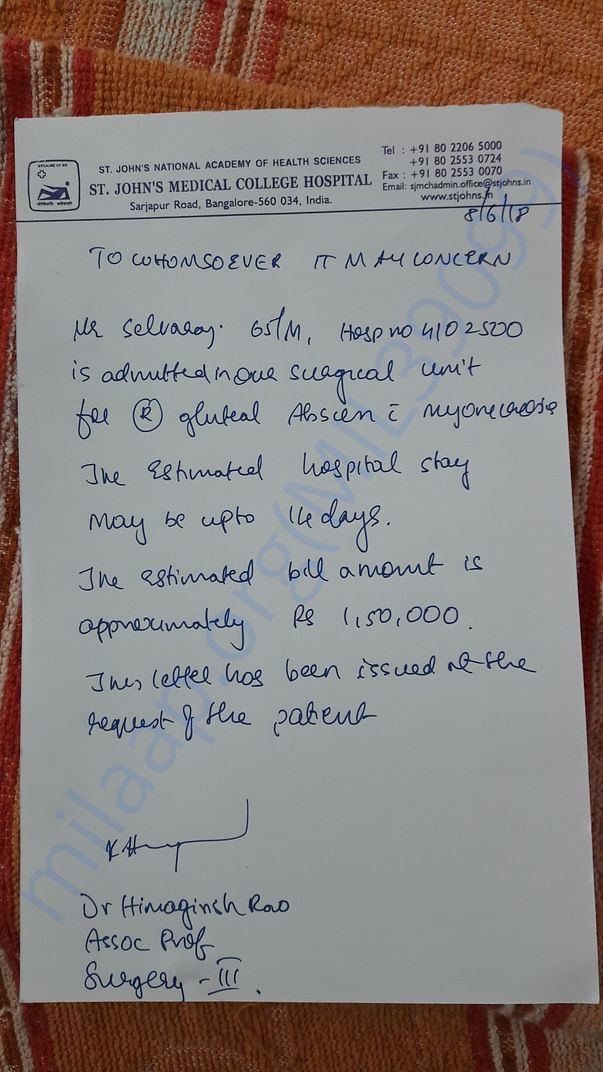 ST. JOHN'S NATIONAL ACADEMY OF HEALTH SCIENCES
ST. JOHN'S MEDICAL COLLEGE HOSPITAL
Sarjapur Road, Bangalore-560 034, India.
Tel : +91 80 2206 5000
+91 80 2553 0724
Fax : +91 80 2553 0070
Email: sjmchadmin.office@stjohns.in
www.stjohns.in
8/6/18
TO WHOMSOEVER IT MAY CONCERN
Mr Selvaraj. 65/M, Hosp no 4102500
is admitted in our surgical unit
for Ⓡ gluteal Abscess c̄
The Estimated hospital stay
May be upto 14 days.
The estimated bill amount is
approximately Rs 1,50,000.
This letter has been issued at the
request of the patient
Dr Himagirish Rao
Assoc Prof
Surgery - III.
milaap.org(MIL39099)